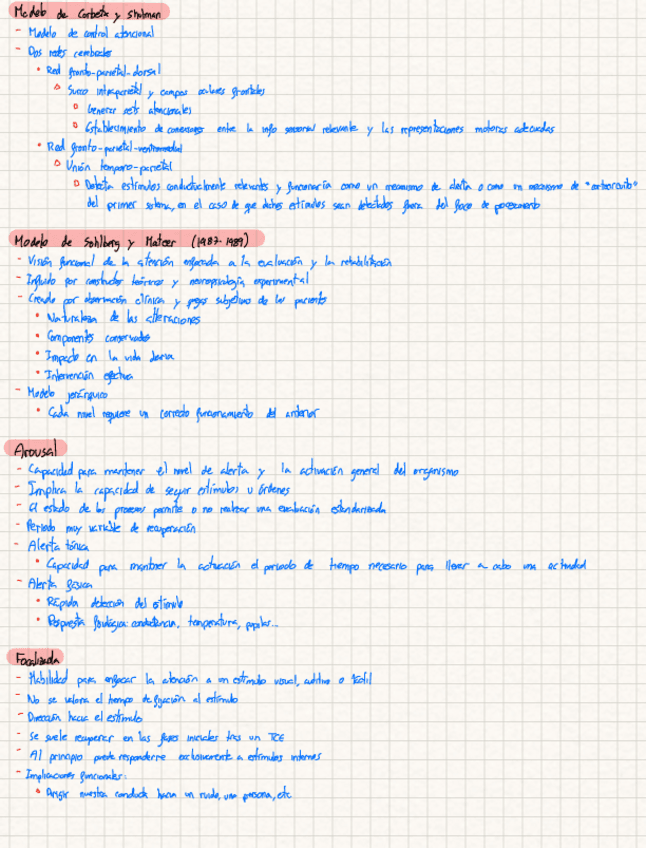 Modelo de Corbetta y Shulman
- Modelo de control atencional
- Dos redes cerebrales
• Red fronto-parietal-dorsal
Surco intraparietal y campos oculares frontales
Generar sets atencionales
Establecimiento de conexiones entre la info sensorial relevante y las representaciones motoras adecuadas
• Red fronto-parietal-ventromedial
Unión temporo-parietal
Detecta estímulos conductualmente relevantes y funcionaría como un mecanismo de alerta o como un mecanismo de "cortocircuito"
del primer sistema, en el caso de que dichos estímulos sean detectados fuera del foco de procesamiento
Modelo de Sohlberg y Mateer (1987-1989)
- Visión funcional de la atención enfocada a la evaluación y la rehabilitación
- Influido por constructos teóricos y neuropsicología experimental
- Creado por observación clínica y quejas subjetivas de los pacientes
• Naturaleza de las alteraciones
• Componentes conservados
• Impacto en la vida diaria
• Intervención efectiva
- Modelo jerárquico
• Cada nivel requiere un correcto funcionamiento del anterior
Arousal
- Capacidad para mantener el nivel de alerta y la activación general del organismo
- Implica la capacidad de seguir estímulos u órdenes
- El estado de los procesos permite o no realizar una evaluación estandarizada
- Periodo muy variable de recuperación
- Alerta tónica
• Capacidad para mantener la activación el periodo de tiempo necesario para llevar a cabo una actividad
- Alerta fásica
• Rápida detección del estímulo
• Respuesta fisiológica: conductancia, temperatura, pupilas...
Focalizada
- Habilidad para enfocar la atención a un estímulo visual, auditivo o táctil
- No se valora el tiempo de fijación al estímulo
- Dirección hacia el estímulo
- Se suele recuperar en las fases iniciales tras un TCE
- Al principio puede responderse exclusivamente a estímulos internos
- Implicaciones funcionales:
• Dirigir nuestra conducta hacia un ruido, una persona, etc